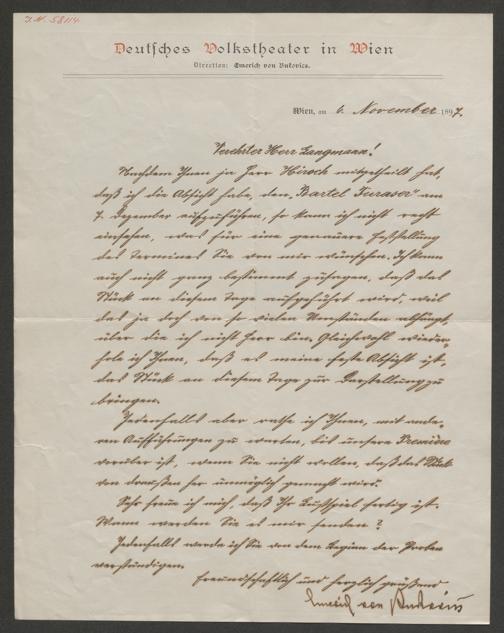 J.N. 58114
Deutsches Volkstheater in Wien
Direction: Emerich von Bukovics.
Wien, am 6. November 1897.
Verehrter Herr Langmann!
Nachdem Ihnen ja Herr Hirsch mitgetheilt hat,
daß ich die Absicht habe, den „Bartel Turaser" am
7. Dezember aufzuführen, so kann ich nicht recht
einsehen, was für eine genauere Feststellung
des Termines Sie von mir wünschen. Ich kann
auch nicht ganz bestimmt zusagen, daß das
Stück an diesem Tage aufgeführt wird, weil
das ja doch von so vielen Umständen abhängt,
über die ich nicht Herr bin. Gleichwohl wieder-
hole ich Ihnen, daß es meine feste Absicht ist,
das Stück an diesem Tage zur Darstellung zu
bringen.
Jedenfalls aber rathe ich Ihnen, mit ande-
ren Aufführungen zu warten, bis unsere Première
vorüber ist, wenn Sie nicht wollen, daß das Stück
von draußen her unmöglich gemacht wird.
Sehr freue ich mich, daß Ihr Lustspiel fertig ist.
Wann werden Sie es mir senden?
Jedenfalls werde ich Sie von dem Beginn der Proben
verständigen.
Freundschaftlich und herzlich grüßend
Emerich von Bukovics